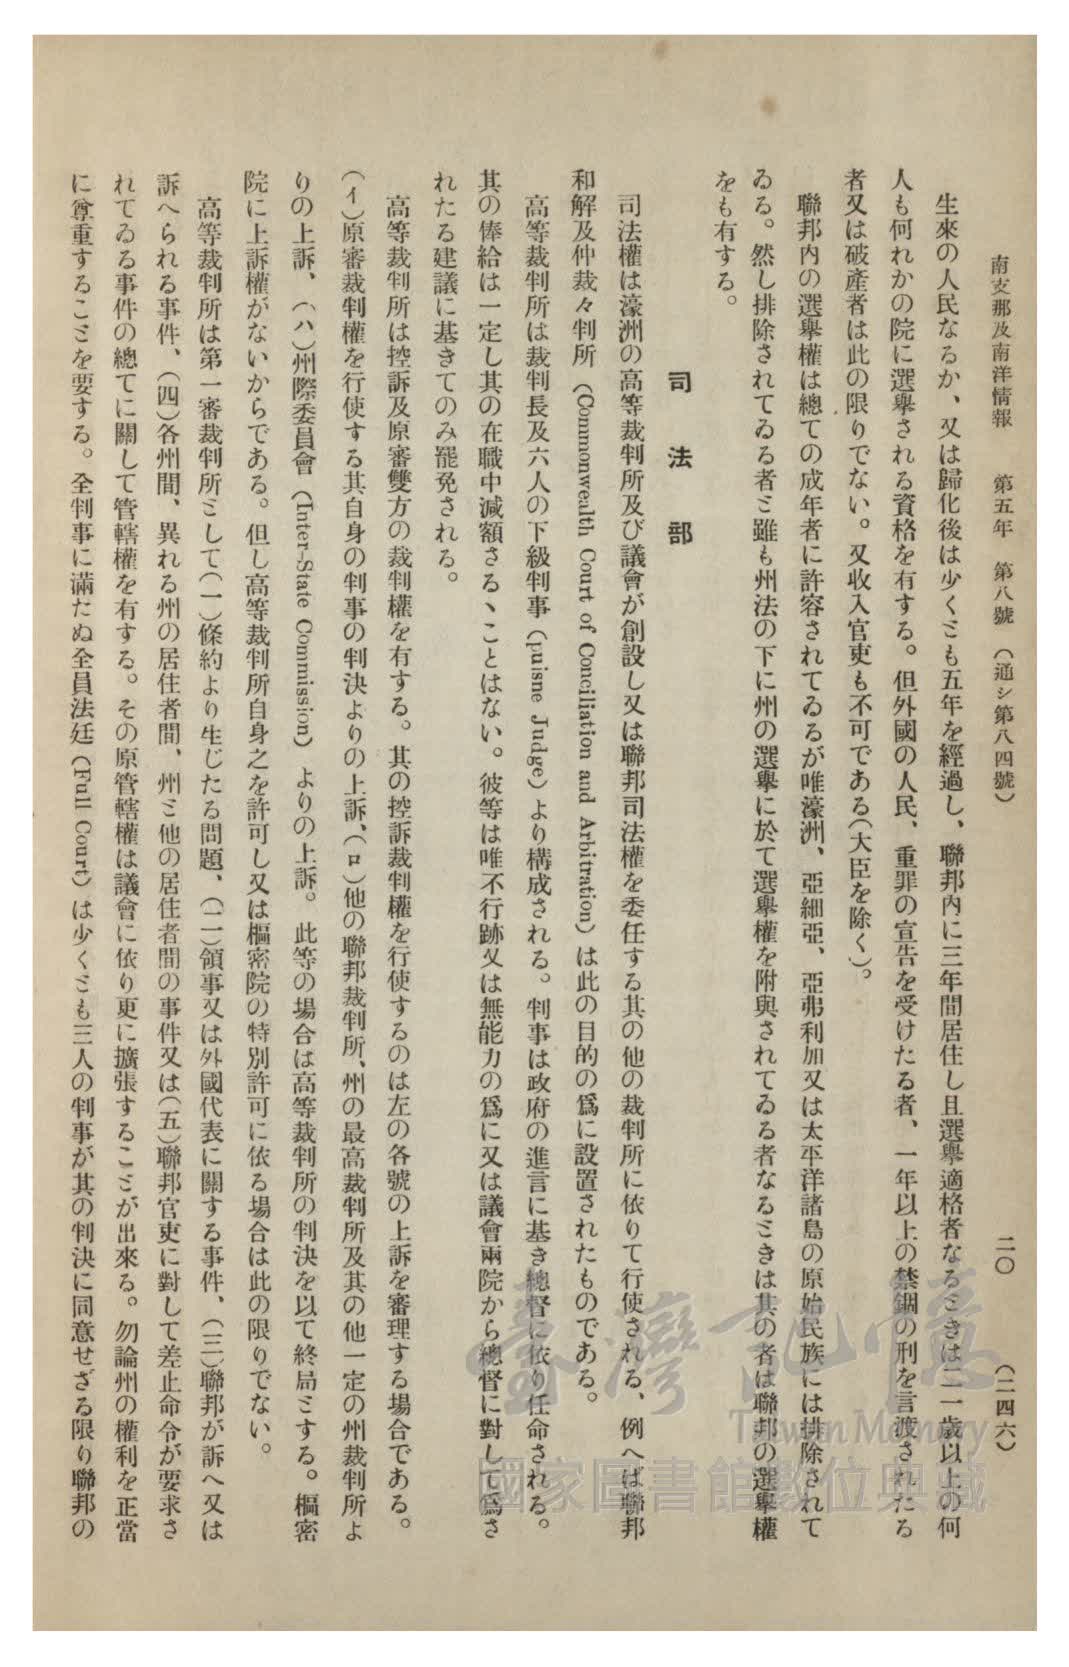 南支那及南洋情報　第五年　第八號（通シ第八四號）　二〇　（二四六）
生來の人民なるか、又は歸化後は少くとも五年を經過し、聯邦內に三年間居住し且選擧適格者なるときは二一歲以上の何
人も何れかの院に選擧される資格を有する。但外國の人民、重罪の宣告を受けたる者、一年以上の禁錮の刑を言渡されたる
者又は破產者は此の限りでない。又收入官吏も不可である（大臣を除く）。
聯邦內の選擧權は總ての成年者に許容されてゐるが唯濠洲、亞細亞、亞弗利加又は太平洋諸島の原始民族には排除されて
ゐる。然し排除されてゐる者と雖も州法の下に州の選擧に於て選擧權を附與されてゐる者なるときは其の者は聯邦の選擧權
をも有する。
司法部
司法權は濠洲の高等裁判所及び議會が創設し又は聯邦司法權を委任する其の他の裁判所に依りて行使される、例へば聯邦
和解及仲裁々判所（Commonwealth Court of Conciliation and Arbitration）は此の目的の爲に設置されたものである。
高等裁判所は裁判長及六人の下級判事（puisne Judge）より構成される。判事は政府の進言に基き總督に依り任命される。
其の俸給は一定し其の在職中減額さるゝことはない。彼等は唯不行跡又は無能力の爲に又は議會兩院から總督に對して爲さ
れたる建議に基きてのみ罷免される。
高等裁判所は控訴及原審雙方の裁判權を有する。其の控訴裁判權を行使するのは左の各號の上訴を審理する場合である。
（イ）原審裁判權を行使する其自身の判事の判決よりの上訴、（ロ）他の聯邦裁判所、州の最高裁判所及其の他一定の州裁判所よ
りの上訴、（ハ）州際委員會（Inter-State Commission）よりの上訴。此等の場合は高等裁判所の判決を以て終局とする。樞密
院に上訴權がないからである。但し高等裁判所自身之を許可し又は樞密院の特別許可に依る場合は此の限りでない。
高等裁判所は第一審裁判所として（一）條約より生じたる問題、（二）領事又は外國代表に關する事件、（三）聯邦が訴へ又は
訴へられる事件、（四）各州間、異れる州の居住者間、州と他の居住者間の事件又は（五）聯邦官吏に對して差止命令が要求さ
れてゐる事件の總てに關して管轄權を有する。その原管轄權は議會に依り更に擴張することが出來る。勿論州の權利を正當
に尊重することを要する。全判事に滿たぬ全員法廷（Full Court）は少くとも三人の判事が其の判決に同意せざる限り聯邦の
臺灣記憶
Taiwan Memory
國家圖書館數位典藏